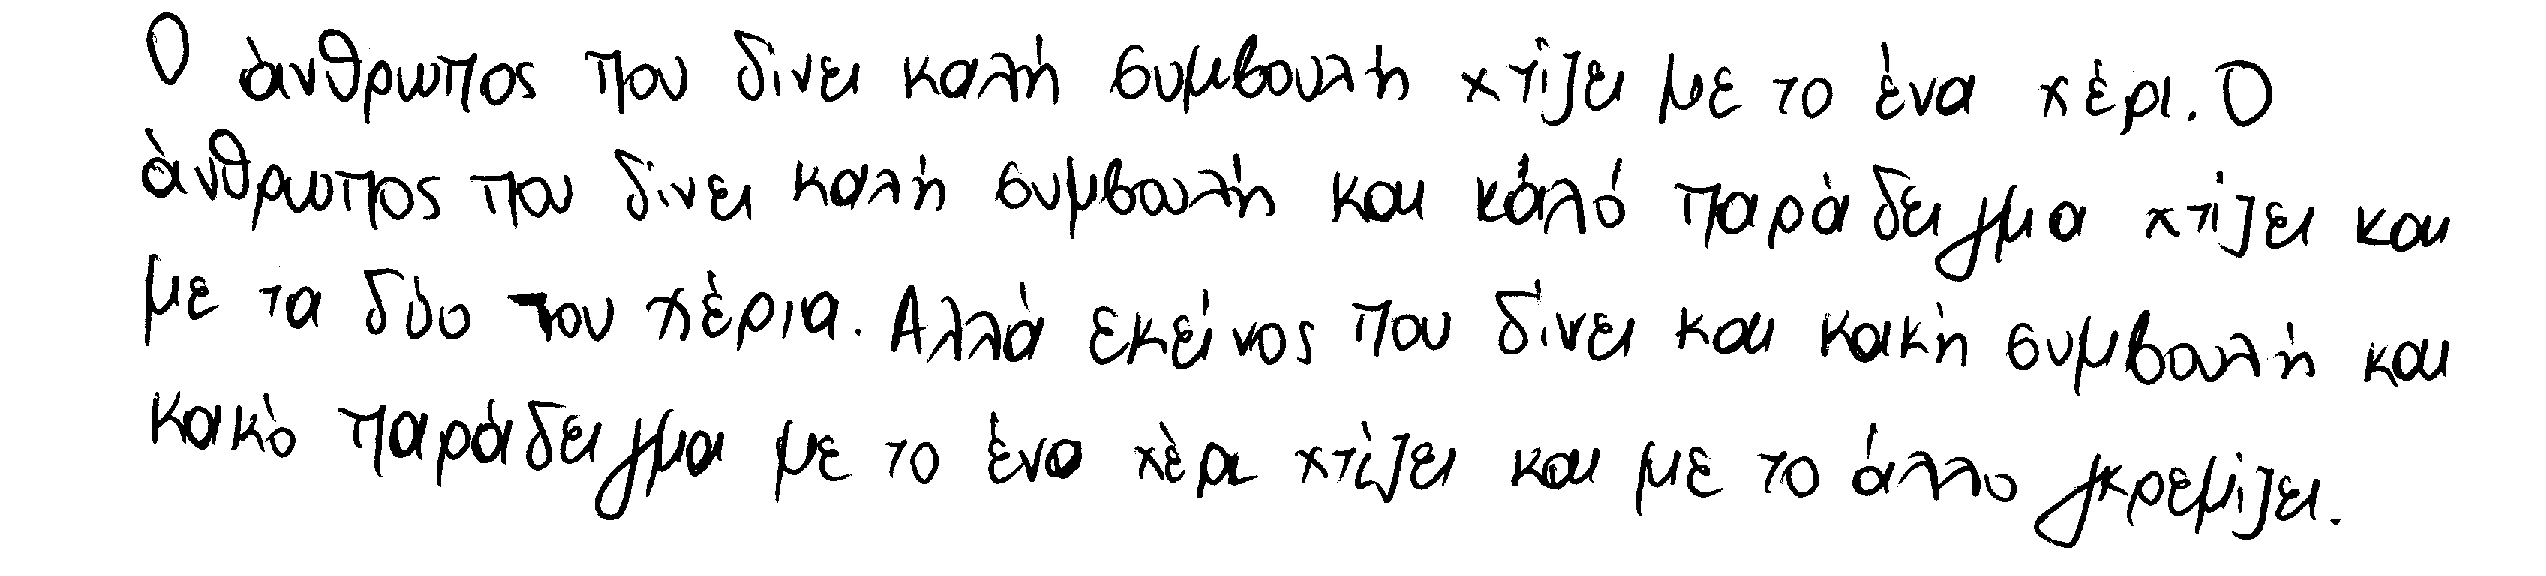 Ο άνθρωπος που δίνει καλή συμβουλή χτίζει με το ένα χέρι. Ο
άνθρωπος που δίνει καλή συμβουλή και κάλό παράδειγμα χτίζει και
με τα δύο του χέρια. Αλλά εκείνος που δίνει και κακή συμβουλή και
κακό παράδειγμα με το ένα χέρι χτίζει και με το άλλο γκρεμίζει.